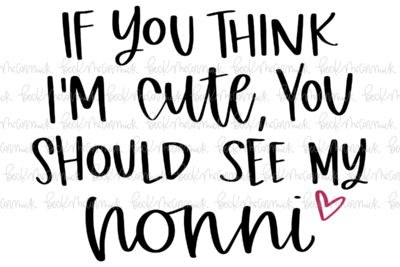 IF YOU THINK
I'M cute, YOU
SHOULD SEE MY
nonni